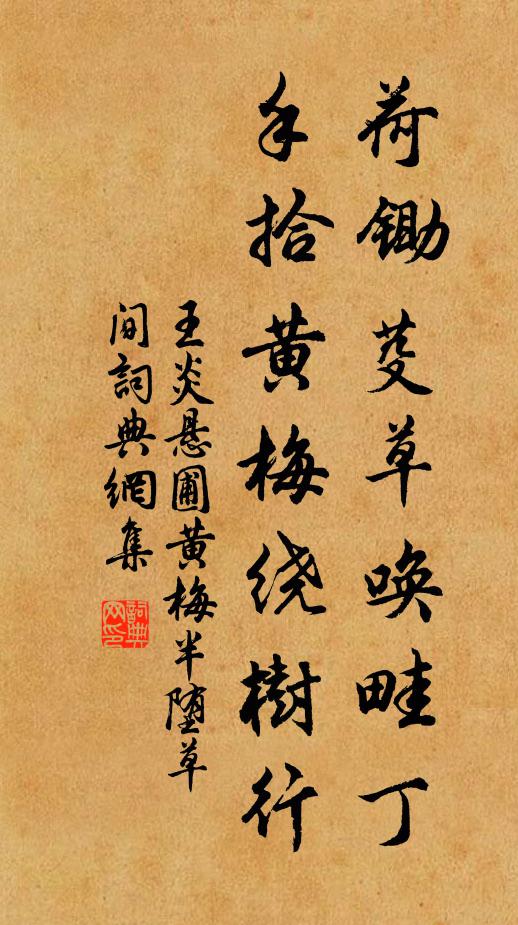 荷锄芟草唤畦丁
手拾黄梅绕樹行
王炎悬圃黄梅半堕草
间詞典網集
詞典网印